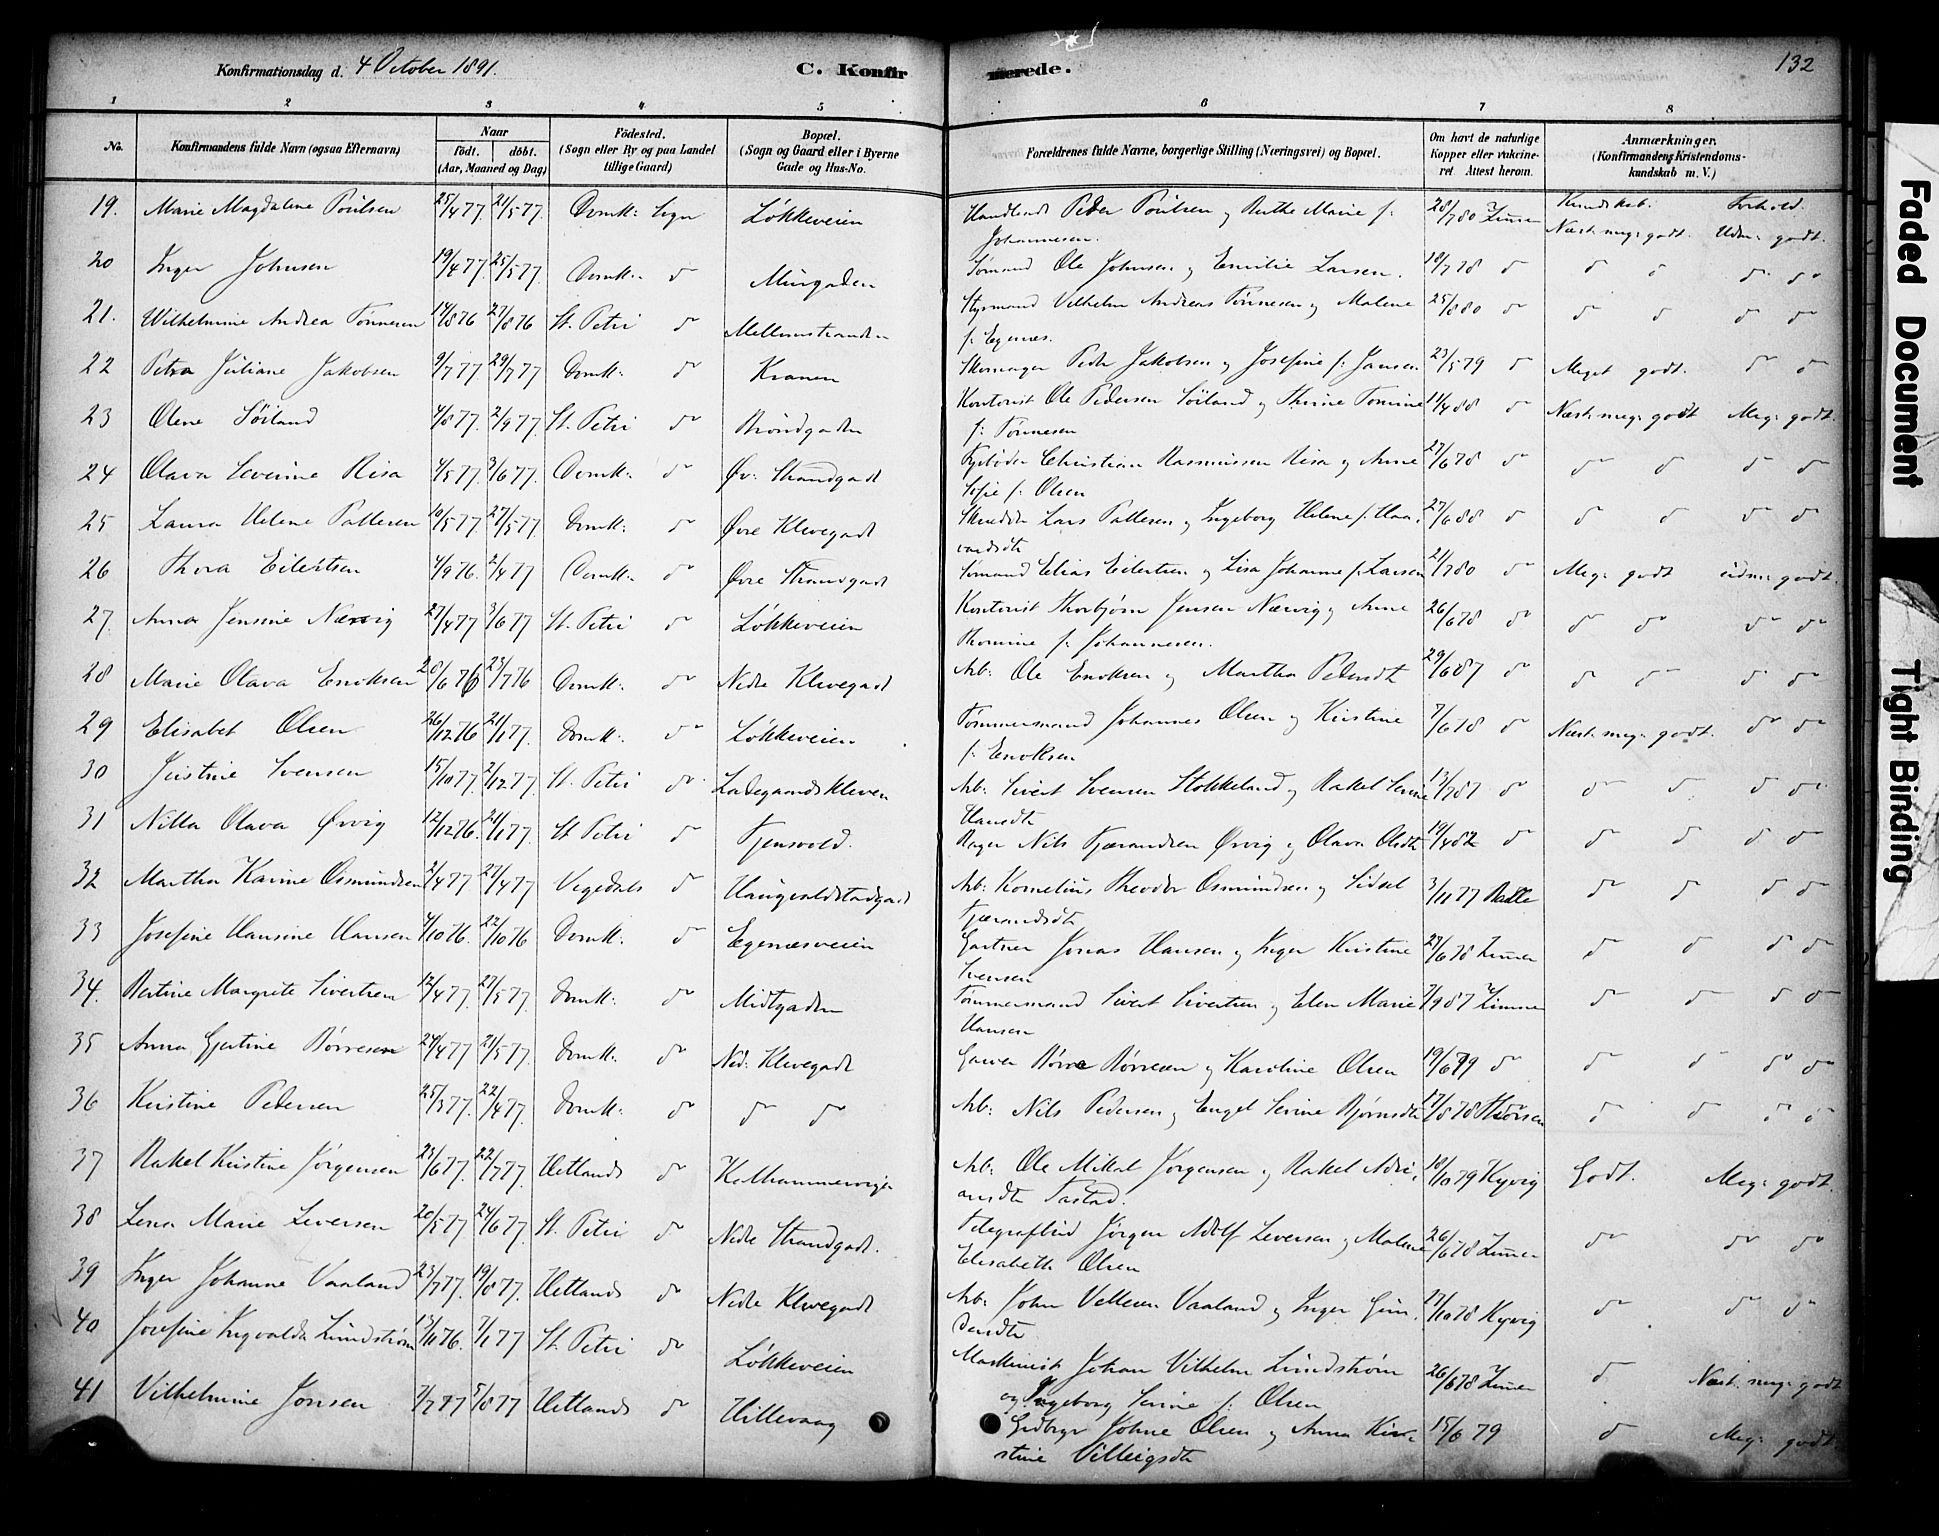 Konfirmationsdag d. 4 October 1891.
C. Konfir
merede.
132
1 2 3 4 5 6 7 8
No.
Konfirmandens fulde Navn (ogsaa Efternavn)
Naar
født. døbt.
(Aar, Maaned og Dag)
Födested.
(Sogn eller By og paa Landet
tillige Gaard)
Bopæl.
(Sogn og Gaard eller i Byerne
Gade og Hus-No.
Forældrenes fulde Navne, borgerlige Stilling (Næringsvei) og Bopæl.
Om havt de naturlige
Kopper eller vakcine-
ret Attest herom.
Anmærkninger.
(Konfirmandens Kristendoms-
kundskab m. V.)
Kundskab. Forhold.
19. Marie Magdalene Poulsen 25/4 77. 21/5 77. Domk: Sogn Løkkeveien Handlende Peder Poulsen og Berthe Marie f: 28/7 80 Zimmer Næst meg: godt. Udm: godt.
Johannesen.
20 Inger Johnsen 19/4 77. 25/5 77. Domk: do Murgaden Sømand Ole Johnsen og Emilie Larsen. 18/7 78 do do do do do
21. Wilhelmine Andrea Tønnesen 14/8 76 27/8 76 St. Petri do Mellemstranden Styrmand Vilhelm Andreas Tønnesen og Malene 25/8 80 do do do do do
f: Egenæs.
22 Petra Juliane Jakobsen 9/7 77 29/7 77 Domk: do Kranen Skomager Peder Jakobsen og Josefine f: Jansen 23/5 79 do Meget godt. do do
23 Olene Söiland 4/8 77. 2/9 77. St. Petri do Brøndgaden Kontorist Ole Pedersen Söiland og Thrine Tomine 11/4 88 do Næst meg: godt Meg: godt.
f: Tönnesen
24 Olava Severine Risa 4/5 77. 3/6 77. Domk: do Øv: Strandgade Christian Rasmussen Risa og Anne 27/6 78 do do do do do
Sofie f: Olsen
25 Laura Helene Pallesen 10/5 77. 27/5 77. Domk: do Øvre Klevegade Lars Pallesen og Ingeborg Helene f. Haa- 27/6 88 do do do do do
vardsdtr
26 Thora Eilertsen 4/9 76. 2/4 77 Domk: do Øvre Strandgade Sømand Elias Eilertsen og Lisa Johanne f: Larsen 21/7 80 do Meg: godt udm: godt.
27. Anna Jensine Nærvig 27/4 77 3/6 77 St. Petri do Løkkeveien Kontorist Thorbjørn Jensen Nærvig og Anne 26/6 78 do do do do do
Thomine f: Johannesen.
28 Marie Olava Enoksen 28/6 76 23/7 76 Domk: do Nedre Klevegade Arb: Ole Enoksen og Martha Pedersdtr 29/6 87 do do do do do
29 Elisabet Olsen 26/12 76 21/1 77. Domk: do Løkkeveien Tømmermand Johannes Olsen og Kirstine 7/6 78 do Næst meg: godt. do do
f: Enoksen
30 Justine Svensen 15/10 77. 2/12 77. St. Petri do Ladegaardskleven Arb: Sivert Svensen Stokkeland og Rakel Serine 13/7 87 do do do do do
Hansdtr
31 Nilla Olava Ørvig 12/12 76. 21/1 77. St. Petri do Tjensvold. Bager Nils Tjærandsen Ørvig og Olava Olsdtr 19/4 82 do do do do do
32 Martha Karine Osmundsen 2/4 77 27/4 77 Vegedals do Haugvaldstadgade Arb: Kornelius Theodor Osmundsen og Sidsel 3/11 77 do do do do
Tjærandsdtr
33 Josefine Hansine Hansen 4/10 76. 22/10 76 Domk: do Egenæsveien Gartner Jonas Hansen og Inger Kirstine 27/6 78 Zimmer do do do do
Svensen
34. Bertine Margrete Sivertsen 12/4 77. 27/5 77. Domk: do Midtgaden Tømmermand Sivert Sivertsen og Elen Marie 7/9 87 Zimmer do do do do
Hansen
35 Anna Gjertine Børresen 24/4 77 21/5 77. Domk: do Ned: Klevegade Garver Børre Børresen og Karoline Olsen 19/6 79 do do do do do
36 Kristine Pedersen 25/3 77. 22/4 77. Domk: do do do Arb: Nils Pedersen og Engel Serine Bjørnsdtr 17/8 78 do do do do
37 Rakel Kristine Jørgensen 23/6 77. 22/7 77. Hetlands do Kalhammervigen Arb: Ole Mikal Jørgensen og Rakel Adri- 18/10 79 Kyvig Godt. Meg: godt.
ansdtr Tastad.
38 Lena Marie Leversen 20/5 77 24/6 77. St. Petri do Nedre Strandgade. Telegrafbud Jørgen Adolf Leversen og Malene 26/6 78 Zimmer do do do
Elisabeth Olsen
39 Inger Johanne Vaaland 23/7 77. 19/8 77. Hetlands do Nedre Klevegade Arb: John Vellesen Vaaland og Inger Gun- 27/10 78 Kyvig do do do
dersdtr
40 Josefine Ingvalda Lundstrøm 13/11 76. 7/1 77 St. Petri do Løkkeveien Maskinist Johan Vilhelm Lundstrøm 26/6 78 Zimmer do Næst meg: godt
og Ingeborg Serine f: Olsen
41 Vilhelmine Jonsen 7/7 77 5/8 77 Hetlands do Hillevaag Johne Olsen og Anna Kir- 15/6 79 do Meg: godt.
stine Villeigsdtr
Faded Document
Tight Binding